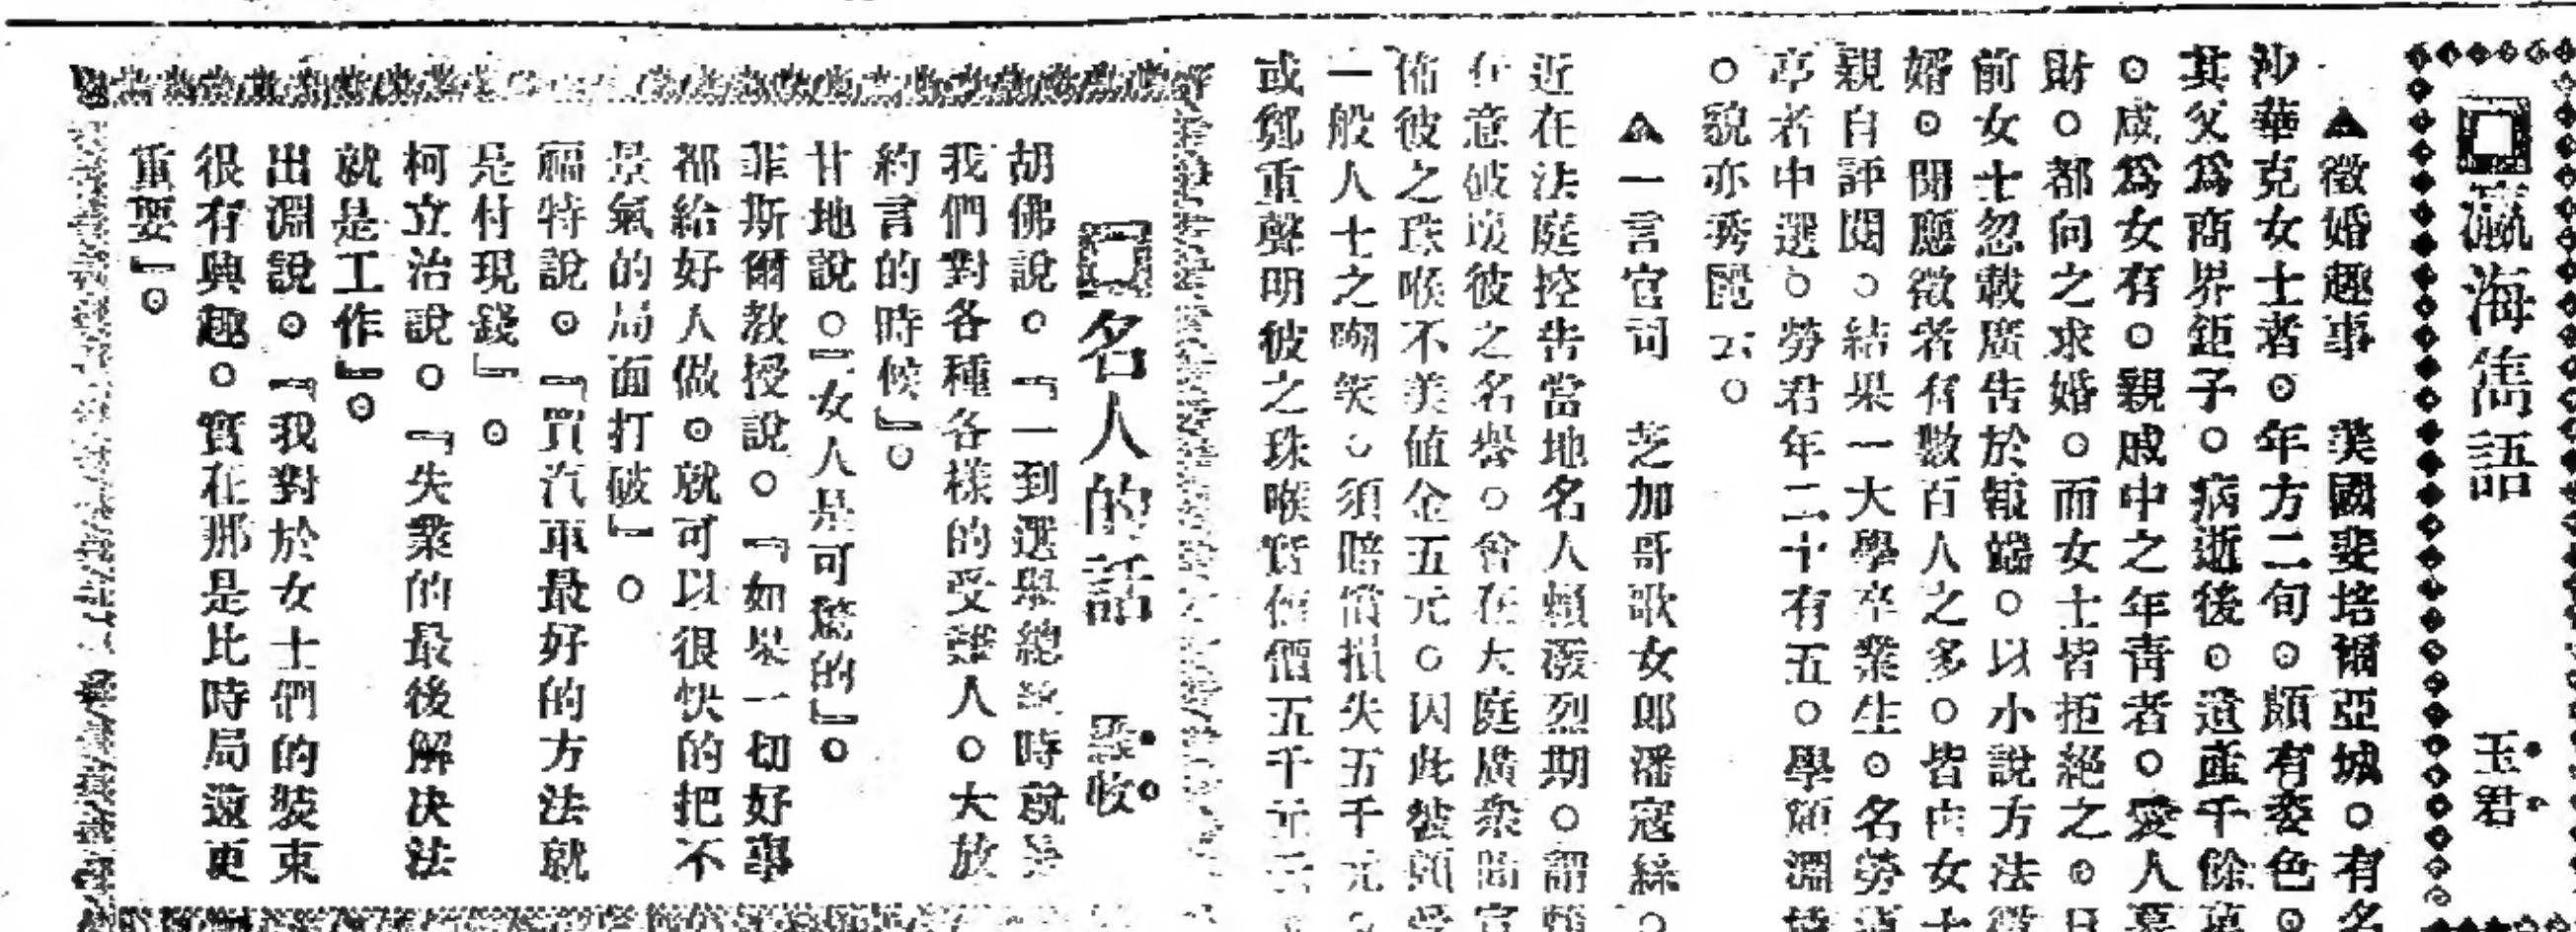 瀛海雋語
玉君
▲徵婚趣事　美國斐培爾亞城。有名
沙華克女士者。年方二旬。頗有姿色。
其父爲商界鉅子。病逝後。遺產千餘萬
。咸爲女有。親戚中之年靑者。愛人慕
財。都向之求婚。而女士皆拒絕之。日
前女士忽載廣告於報端。以小說方法徵
婿。聞應徵者有數百人之多。皆由女士
親自評閱。結果一大學卒業生。名勞
亭者中選。勞君年二十有五。學頗淵博
。貌亦秀麗云。
▲一言官司　芝加哥歌女郎潘寇絲。
近在法庭控告當地名人賴潑烈期。謂
在意破壞彼之名譽。曾在大庭廣衆間宣
佈彼之珠喉不美値金五元。因此彼頗受
一般人士之嘲笑。須賠償損失五千元。
或鄭重聲明彼之珠喉實値價五千元云。
名人的話
收
胡佛說。『一到選舉總統時就是
我們對各種各樣的受難人。大放
約言的時候』。
甘地說。『女人是可驚的』。
菲斯爾教授說。『如果一切好事
都給好人做。就可以很快的把不
景氣的局面打破』。
福特說。『買汽車最好的方法就
是付現錢』。
柯立治說。『失業的最後解決法
就是工作』。
出淵說。『我對於女士們的裝束
很有興趣。實在那是比時局還更
重要』。